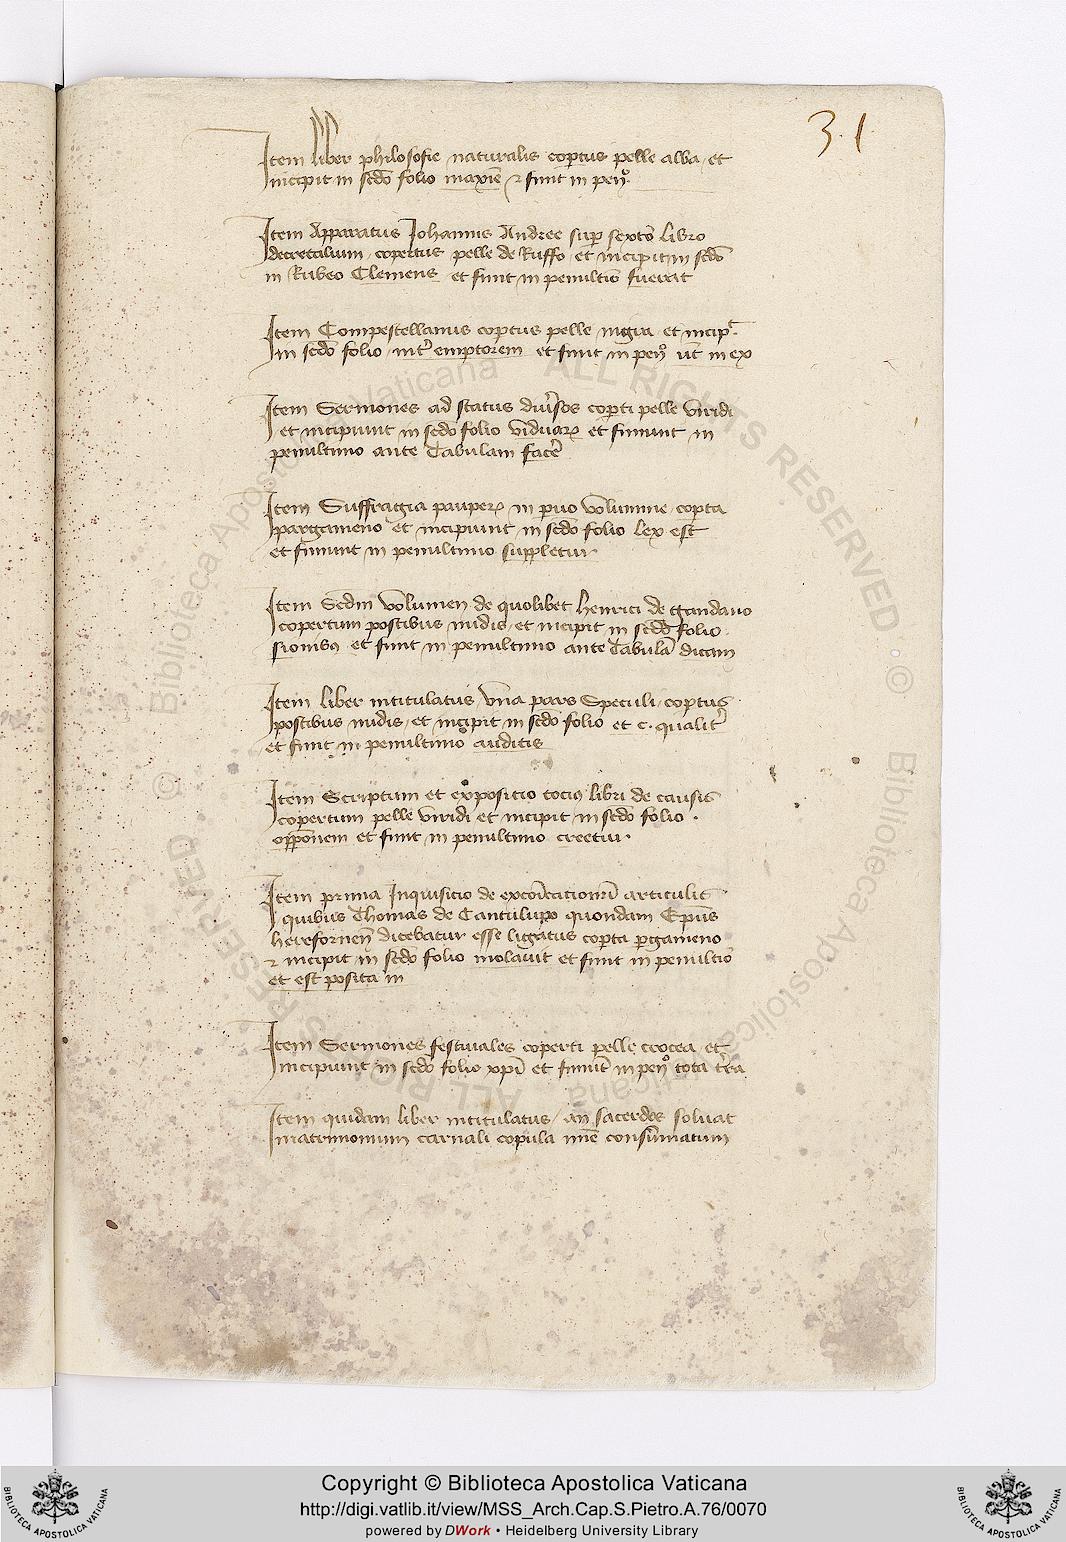 31
Item liber philosofie naturalis coptus pelle alba et
incipit in scdo folio maxime et finit in pen°
Item Apparatus Johannis Andree sup sexto libro
decretalium copertus pelle de Ruffo et incipit in scdo
in Rubeo Clemens et finit in penultio fuerat
Item Compostellanus coptus pelle nigra et incip
in scdo folio int emptorem et finit in pen° ut in ex
Item Sermones ad status divsos copti pelle viridi
et incipiunt in scdo folio viduar et finiunt in
penultimo ante Tabulam face
Item Suffragia pauper in pvo volumine copta
pargameno et incipiunt in scdo folio lex est
et finiunt in penultimo suppletur
Item Scdm volumen de quolibet henrici de Gandavo
copertum postibus nudis et incipit in scdo folio
sionibus et finit in penultimo ante Tabula dicam
Item liber intitulatus una pars Speculi coptus
postibus nudis et incipit in scdo folio et c. qualit
et finit in penultimo auditis
Item Scriptum et expositio tocius libri de causis
copertum pelle viridi et incipit in scdo folio
opponem et finit in penultimo creetur
Item prima Inquisicio de excoicationum articulis
quibus Thomas de Cantulupo quondam Epus
hereforden dicebatur esse ligatus copta pgameno
et incipit in scdo folio molavit et finit in penultio
et est posita in
Item Sermones festivales coperti pelle crocea et
incipiunt in scdo folio xpi et finiut in pen° tota tra
Item quidam liber intitulatus an sacerdos solvat
matrimonium carnali copula mie consumatum
© Biblioteca Apostolica Vaticana ALL RIGHTS RESERVED
© Biblioteca Apostolica Vaticana ALL RIGHTS RESERVED
Copyright © Biblioteca Apostolica Vaticana
http://digi.vatlib.it/view/MSS_Arch.Cap.S.Pietro.A.76/0070
powered by DWork • Heidelberg University Library
BIBLIOTECA APOSTOLICA VATICANA
BIBLIOTECA APOSTOLICA VATICANA